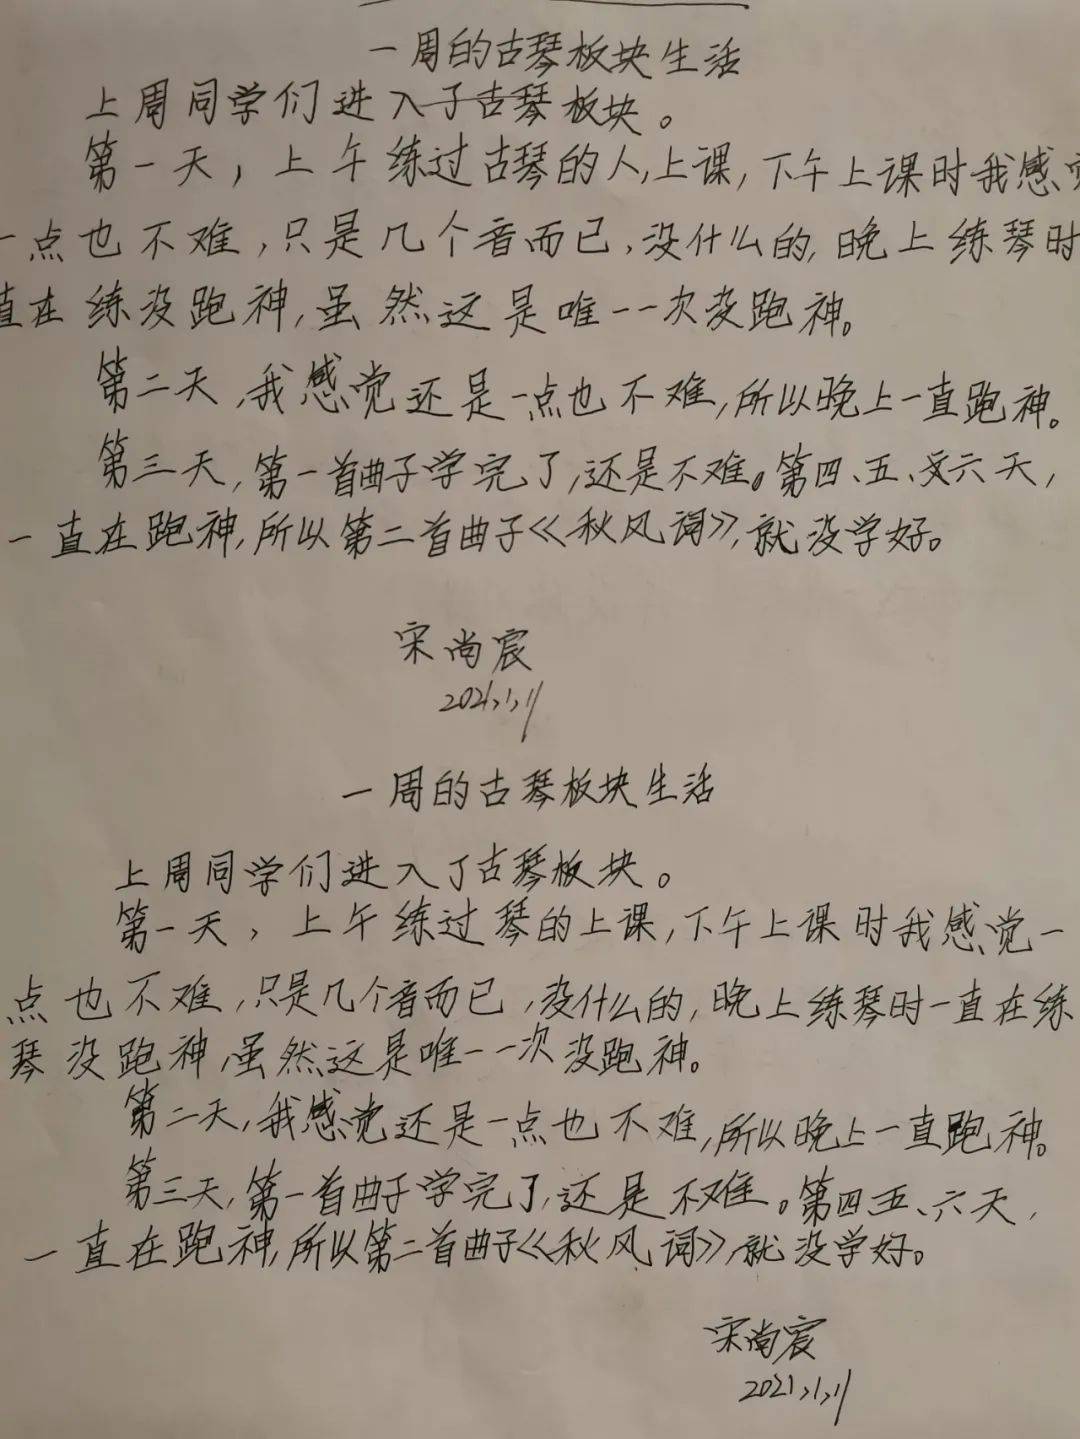 一周的古琴板块生活
上周同学们进入了古琴板块。
第一天，上午练过古琴的人,上课,下午上课时我感觉
一点也不难,只是几个音而已,没什么的,晚上练琴时
直在练没跑神,虽然这是唯一一次没跑神。
第二天,我感觉还是一点也不难,所以晚上一直跑神。
第三天,第一首曲子学完了,还是不难。第四、五、六天,
一直在跑神,所以第二首曲子《秋风词》,就没学好。
宋尚宸
2021,1,11
一周的古琴板块生活
上周同学们进入了古琴板块。
第一天,上午练过琴的上课,下午上课时我感觉一
点也不难,只是几个音而已,没什么的,晚上练琴时一直在练
琴没跑神,虽然这是唯一一次没跑神。
第二天,我感觉还是一点也不难,所以晚上一直跑神。
第三天,第一首曲子学完了,还是不难。第四五、六天,
一直在跑神,所以第二首曲子《秋风词》,就没学好。
宋尚宸
2021,1,11